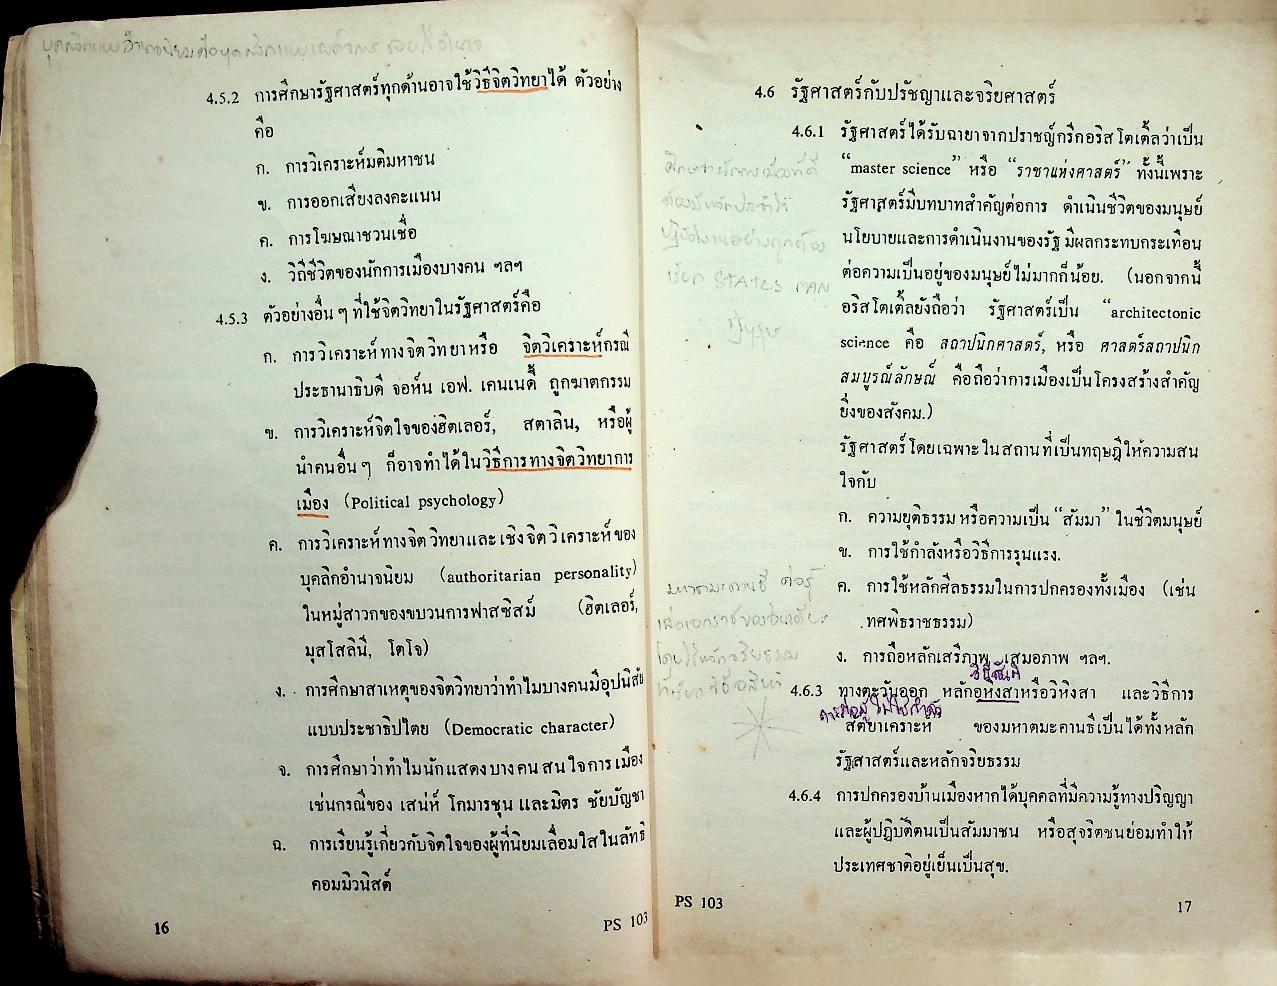 4.5.2 การศึกษารัฐศาสตร์ทุกด้านอาจใช้วิธีจิตวิทยาได้ ตัวอย่าง
คือ
ก. การวิเคราะห์มติมหาชน
ข. การออกเสียงลงคะแนน
ค. การโฆษณาชวนเชื่อ
ง. วิถีชีวิตของนักการเมืองบางคน ฯลฯ
4.5.3 ตัวอย่างอื่น ๆ ที่ใช้จิตวิทยาในรัฐศาสตร์คือ
ก. การวิเคราะห์ทางจิตวิทยาหรือ จิตวิเคราะห์กรณี
ประธานาธิบดี จอห์น เอฟ. เคนเนดี้ ถูกฆาตกรรม
ข. การวิเคราะห์จิตใจของฮิตเลอร์, สตาลิน, หรือผู้
นำคนอื่น ๆ ก็อาจทำได้ในวิธีการทางจิตวิทยาการ
เมือง (Political psychology)
ค. การวิเคราะห์ทางจิตวิทยาและเชิงจิตวิเคราะห์ของ
บุคลิกอำนาจนิยม (authoritarian personality)
ในหมู่สาวกของขบวนการฟาสซิสม์ (ฮิตเลอร์,
มุสโสลินี, โตโจ)
ง. การศึกษาสาเหตุของจิตวิทยาว่าทำไมบางคนมีอุปนิสัย
แบบประชาธิปไตย (Democratic character)
จ. การศึกษาว่าทำไมนักแสดงบางคนสนใจการเมือง
เช่นกรณีของ เสน่ห์ โกมารชุน และมิตร ชัยบัญชา
ฉ. การเรียนรู้เกี่ยวกับจิตใจของผู้ที่นิยมเลื่อมใสในลัทธิ
คอมมิวนิสต์
16 PS 103
4.6 รัฐศาสตร์กับปรัชญาและจริยศาสตร์
4.6.1 รัฐศาสตร์ได้รับฉายาจากปราชญ์กรีกอริสโตเติ้ลว่าเป็น
“master science” หรือ “ราชาแห่งศาสตร์” ทั้งนี้เพราะ
รัฐศาสตร์มีบทบาทสำคัญต่อการ ดำเนินชีวิตของมนุษย์
นโยบายและการดำเนินงานของรัฐมีผลกระทบกระเทือน
ต่อความเป็นอยู่ของมนุษย์ไม่มากก็น้อย. (นอกจากนี้
อริสโตเติ้ลยังถือว่า รัฐศาสตร์เป็น “architectonic
science คือ สถาปนิกศาสตร์, หรือ ศาสตร์สถาปนิก
สมบูรณ์ลักษณ์ คือถือว่าการเมืองเป็นโครงสร้างสำคัญ
ยิ่งของสังคม.)
รัฐศาสตร์โดยเฉพาะในสถานที่เป็นทฤษฎีให้ความสน
ใจกับ
ก. ความยุติธรรมหรือความเป็น “สัมมา” ในชีวิตมนุษย์
ข. การใช้กำลังหรือวิธีการรุนแรง.
ค. การใช้หลักศีลธรรมในการปกครองทั้งเมือง (เช่น
ทศพิธราชธรรม)
ง. การถือหลักเสรีภาพ เสมอภาพ ฯลฯ.
4.6.3 ทางตะวันออก หลักอหิงสาหรือวิหิงสา และวิธีการ
สัตยาเคราะห์ ของมหาตมะคานธีเป็นได้ทั้งหลัก
รัฐศาสตร์และหลักจริยธรรม
4.6.4 การปกครองบ้านเมืองหากได้บุคคลที่มีความรู้ทางปริญญา
และผู้ปฏิบัติตนเป็นสัมมาชน หรือสุจริตชนย่อมทำให้
ประเทศชาติอยู่เย็นเป็นสุข.
PS 103 17
เรียก STATES MAN